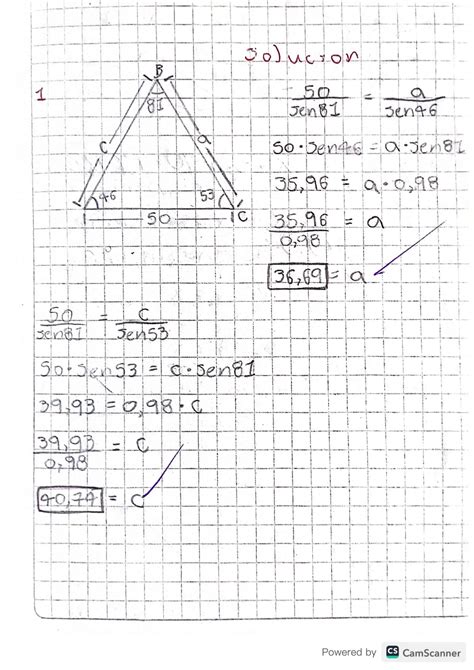 Solucion
1
B
81
c
a
46
53
50
C
50 / sen81 = a / sen46
50 · sen46 = a · sen81
35,96 = a · 0,98
35,96 / 0,98 = a
36,69 = a
50 / sen81 = c / sen53
50 · sen53 = c · sen81
39,93 = 0,98 · c
39,93 / 0,98 = c
40,74 = c
Powered by CS CamScanner